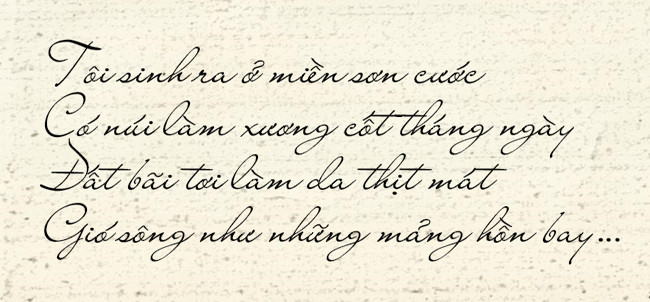 Tôi sinh ra ở miền sơn cước
Có núi làm xương cốt tháng ngày
Đất bãi tơi làm da thịt mát
Gió sông như những mảng hồn bay...